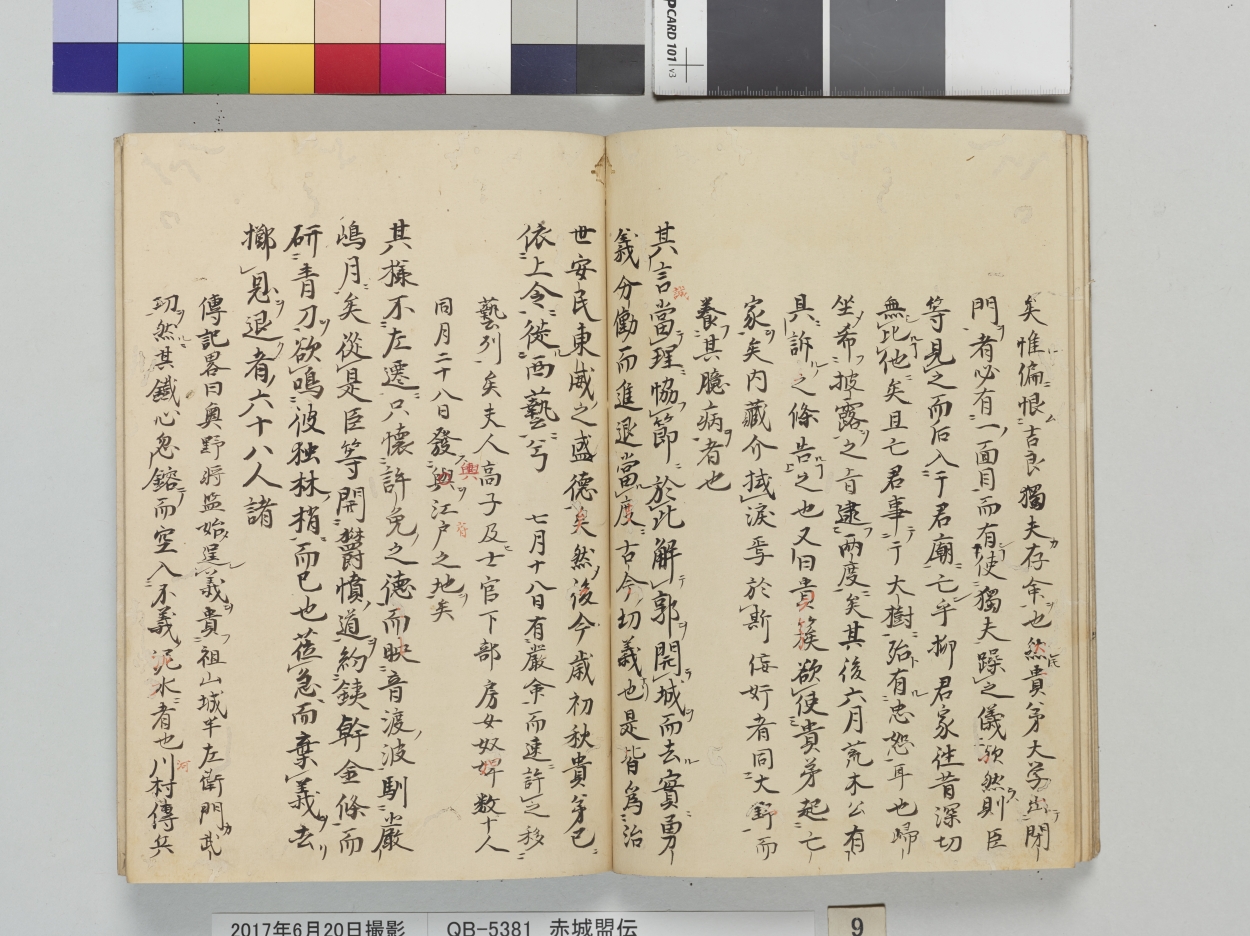 矣惟偏恨吉良獨夫存命也然貴弟大学出閉
門者必有一面目而有使獨夫躁之儀欤然則臣
等見之而后入于君廟亡乎抑君家往昔深切
無比他矣且亡君事于大樹殆有忠恕耳也歸
坐希披露之旨逮兩度矣其後六月荒木公有
具訴之條告之也又曰貴簇欲使貴弟起亡
家矣内藏介拭涙焉於斯佞奸者同大野而
養其臆病者也
其言當理恊節於此解郭開城而去實勇
義分勸而進退當度古今切義也是皆為治
世安民東威之盛德矣然後今歳初秋貴弟已
依上令徙西藝兮 七月十八日有嚴命而速許之移
藝列矣夫人高子及士官下部房女奴婢数十人
同月二十八日發與江戸之地矣
其様不左遷只懷許免之德而映音渡波馴嚴
嶋月矣從是臣等開欝憤道約銕幹金條而
研青刀欲鳴彼独林梢而已也莅急而棄義去
擲恩退者六十八人諸
傳記畧曰奥野将監始逞義貴祖山城半左衛門武
功然其鐵心忽鎔而空入不義泥水者也川村傳兵
PCARD 101 v3
2017年6月20日撮影 QB-5381 赤城盟伝
9